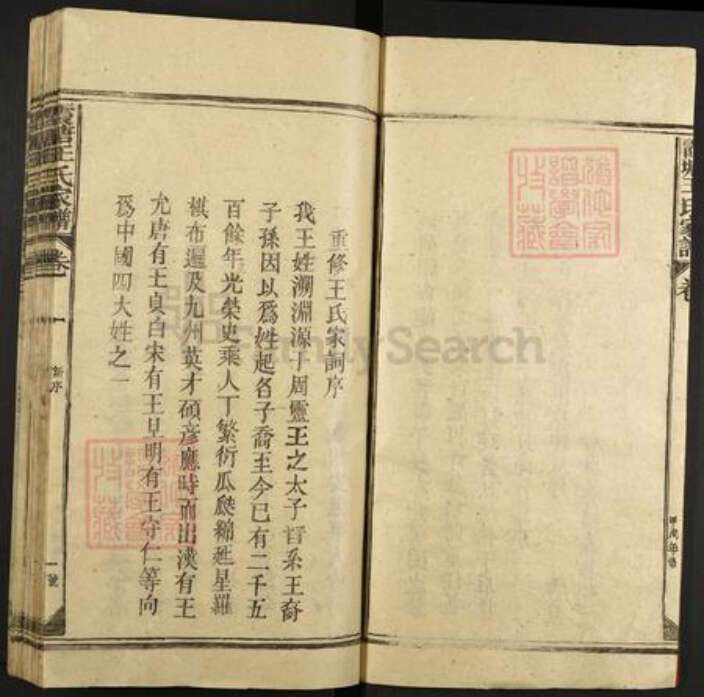 重修王氏家詞序
我王姓溯淵源于周靈王之太子晉系王裔
子孫因以爲姓起名子喬至今已有二千五
百餘年光荣史乘人丁繁衍瓜瓞綿延星羅
棋布遍及九州英才碩彥應時而出漢有王
允唐有王貞白宋有王旦明有王守仁等向
爲中國四大姓之一
王氏家譜
卷
序
一號
王氏家譜
卷
FamilySearch